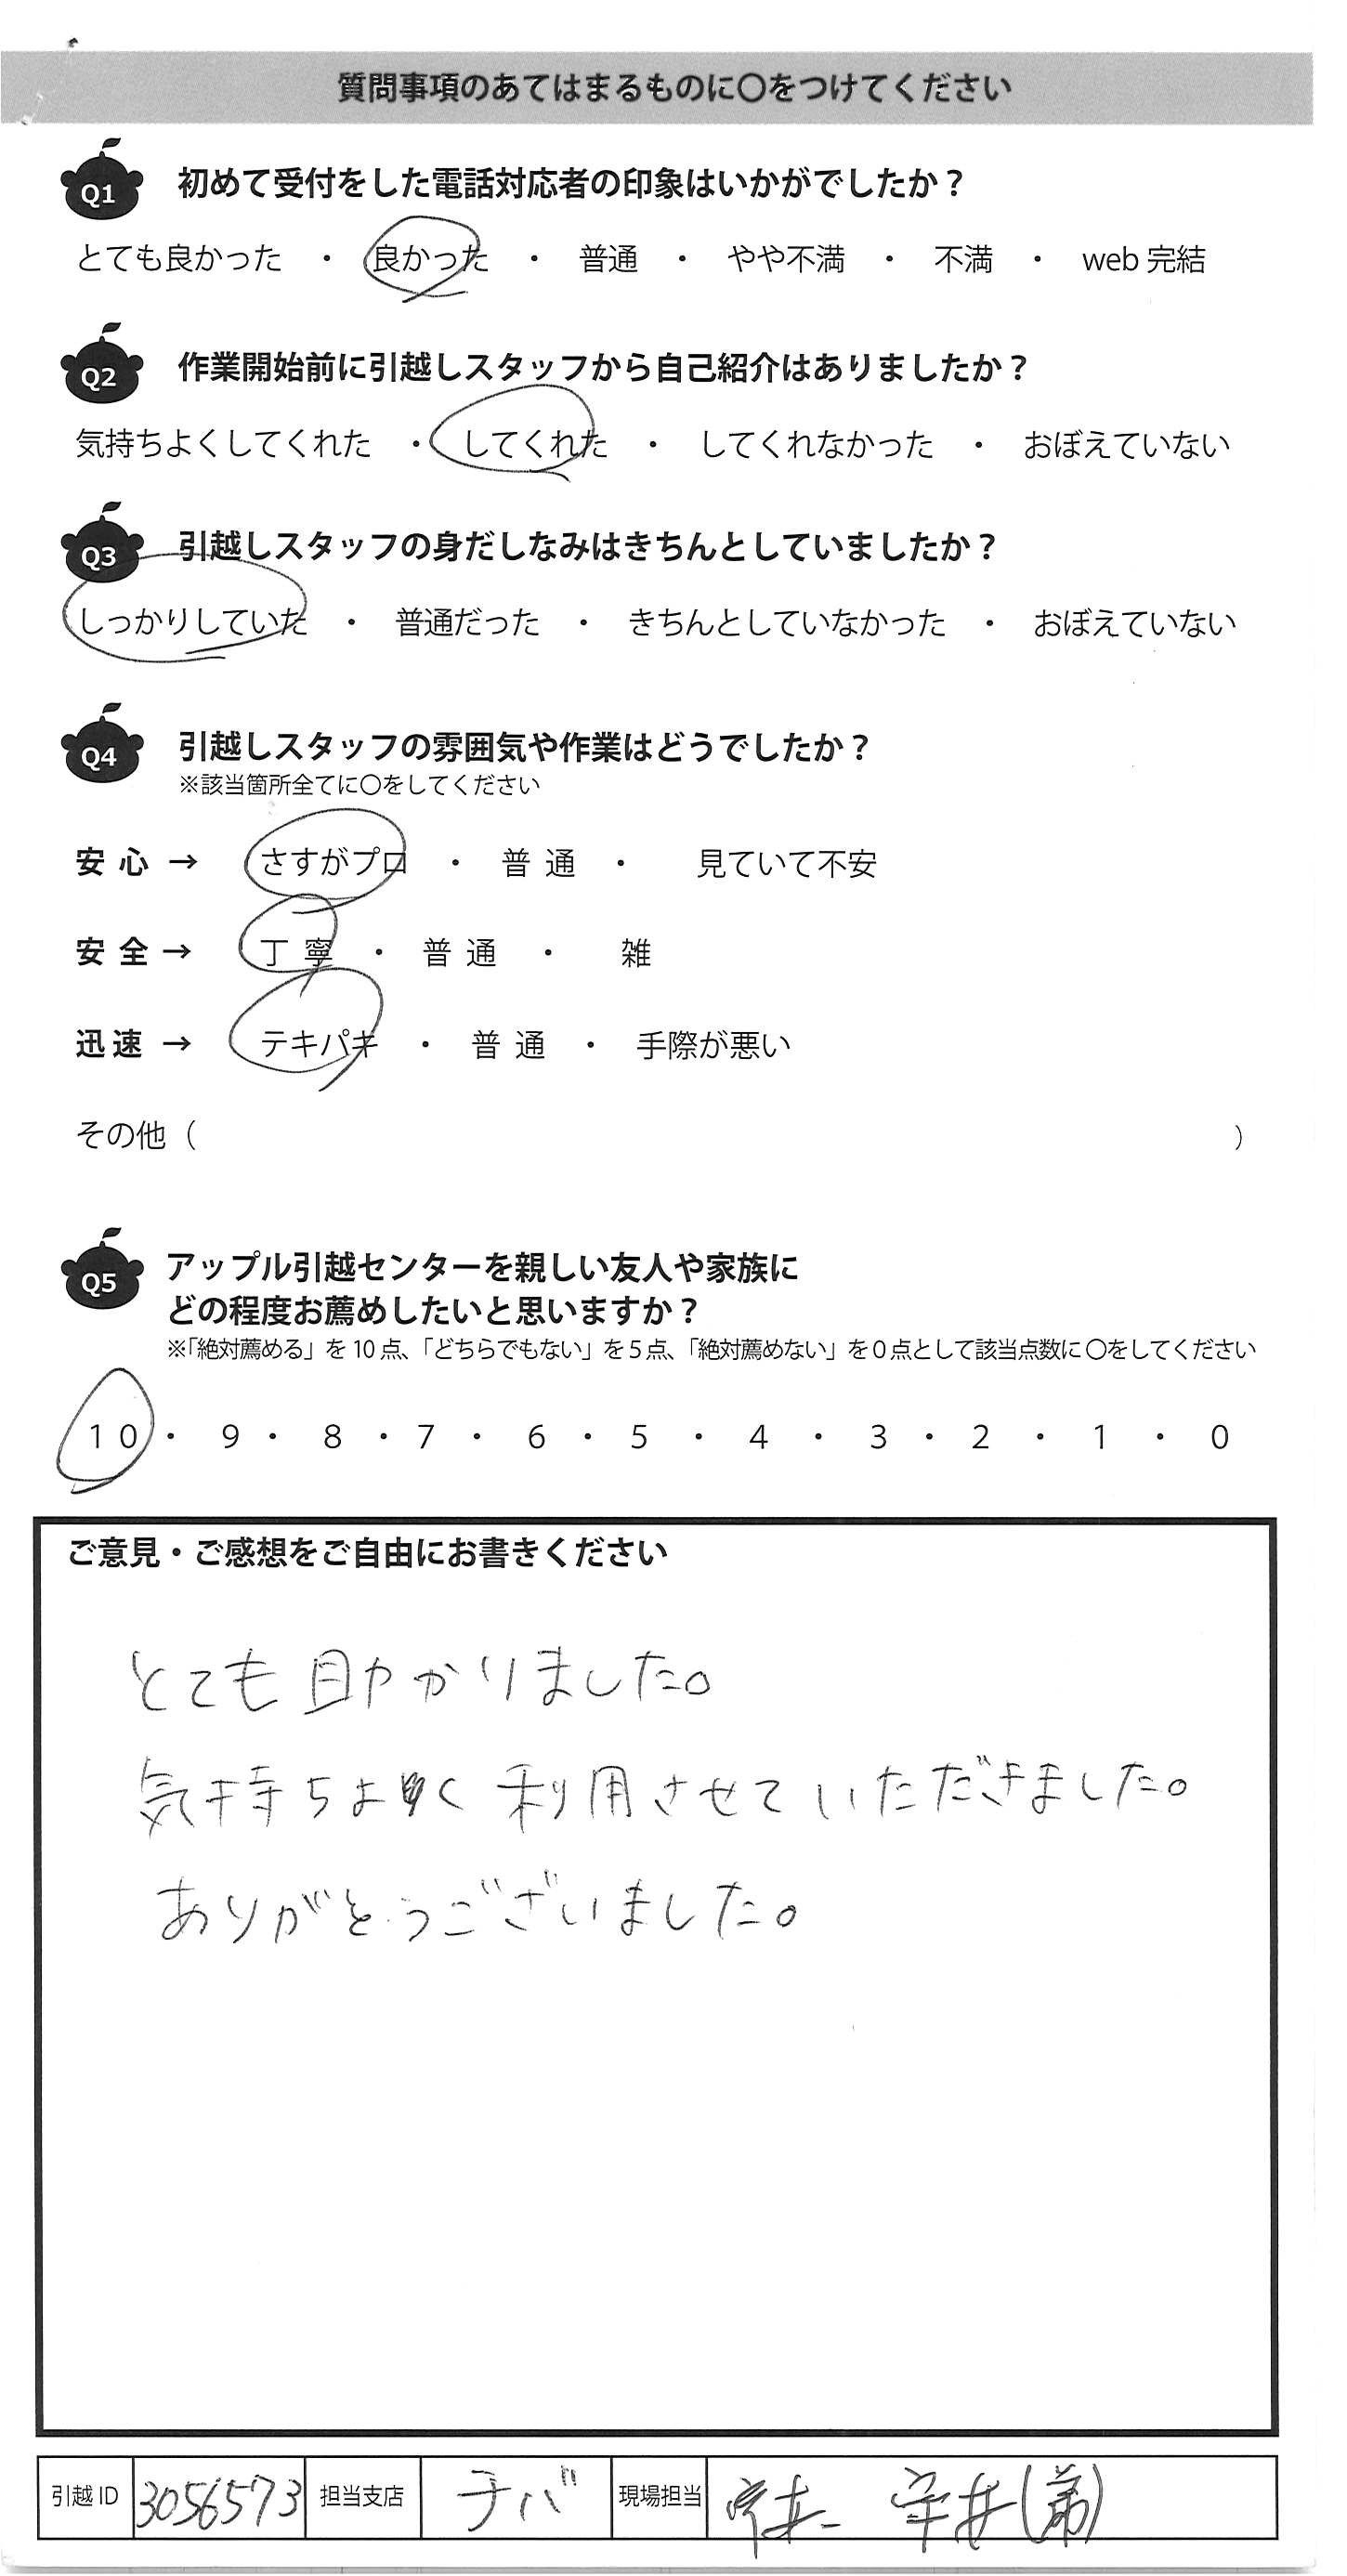 質問事項のあてはまるものに〇をつけてください
Q1 初めて受付をした電話対応者の印象はいかがでしたか？
とても良かった ・ 良かった ・ 普通 ・ やや不満 ・ 不満 ・ web 完結
Q2 作業開始前に引越しスタッフから自己紹介はありましたか？
気持ちよくしてくれた ・ してくれた ・ してくれなかった ・ おぼえていない
Q3 引越しスタッフの身だしなみはきちんとしていましたか？
しっかりしていた ・ 普通だった ・ きちんとしていなかった ・ おぼえていない
Q4 引越しスタッフの雰囲気や作業はどうでしたか？
※該当箇所全てに〇をしてください
安心 → さすがプロ ・ 普通 ・ 見ていて不安
安全 → 丁寧 ・ 普通 ・ 雑
迅速 → テキパキ ・ 普通 ・ 手際が悪い
その他（ ）
Q5 アップル引越センターを親しい友人や家族に
どの程度お薦めしたいと思いますか？
※「絶対薦める」を 10 点、「どちらでもない」を 5 点、「絶対薦めない」を 0 点として該当点数に 〇をしてください
10 ・ 9 ・ 8 ・ 7 ・ 6 ・ 5 ・ 4 ・ 3 ・ 2 ・ 1 ・ 0
ご意見・ご感想をご自由にお書きください
とても助かりました。
気持ちよく利用させていただきました。
ありがとうございました。
引越 ID 3056573 担当支店 チバ 現場担当 (弟)